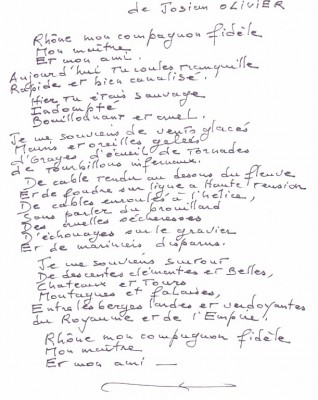 de Josian OLIVIER
Rhône mon compagnon fidèle
Mon maître
Et mon ami.
Aujourd'hui tu coules tranquille
Rapide et bien canalisé.
Hier tu étais sauvage
Indompté
Bouillonnant et cruel.
Je me souviens de vents glacés
Mains et oreilles gelées
D'orages, d'écueil de Tornades
de Tourbillons infernaux.
De cable tendu au dessous du fleuve
Et de foudre sur ligne a Haute Tension
De cables enroulés a l'hélice,
Sans parler du brouillard
Des cruelles sécheresses
D'échouages sur le gravier
Et de mariniers disparus.
Je me souviens surtout
De descentes clémentes et Belles,
Chateaux et Tours
Montagnes et falaises,
Entre les berges lardes et verdoyantes
du Royaume et de l'Empire.
Rhône mon compagnon fidèle
Mon maître
Et mon ami —